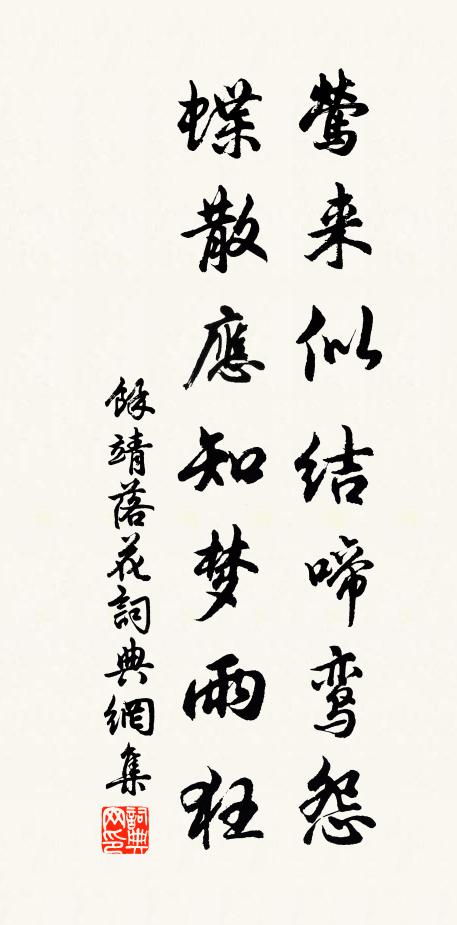 莺来似结啼鸾怨
蝶散應知梦雨狂
餘靖落花詞典網集
詞典网印